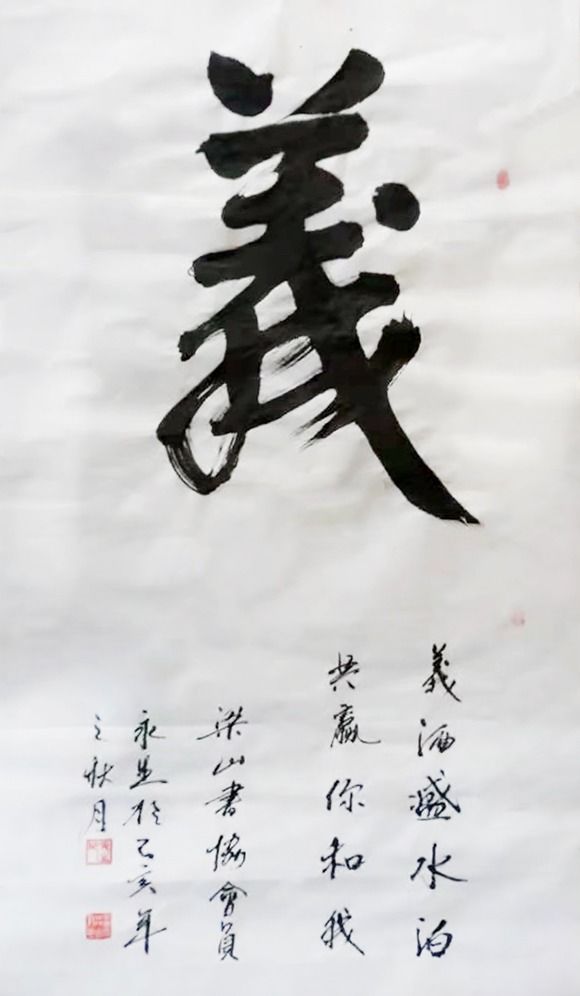 義
義酒盛水泊
共贏你和我
梁山書協會員
永思於己亥年
之秋月